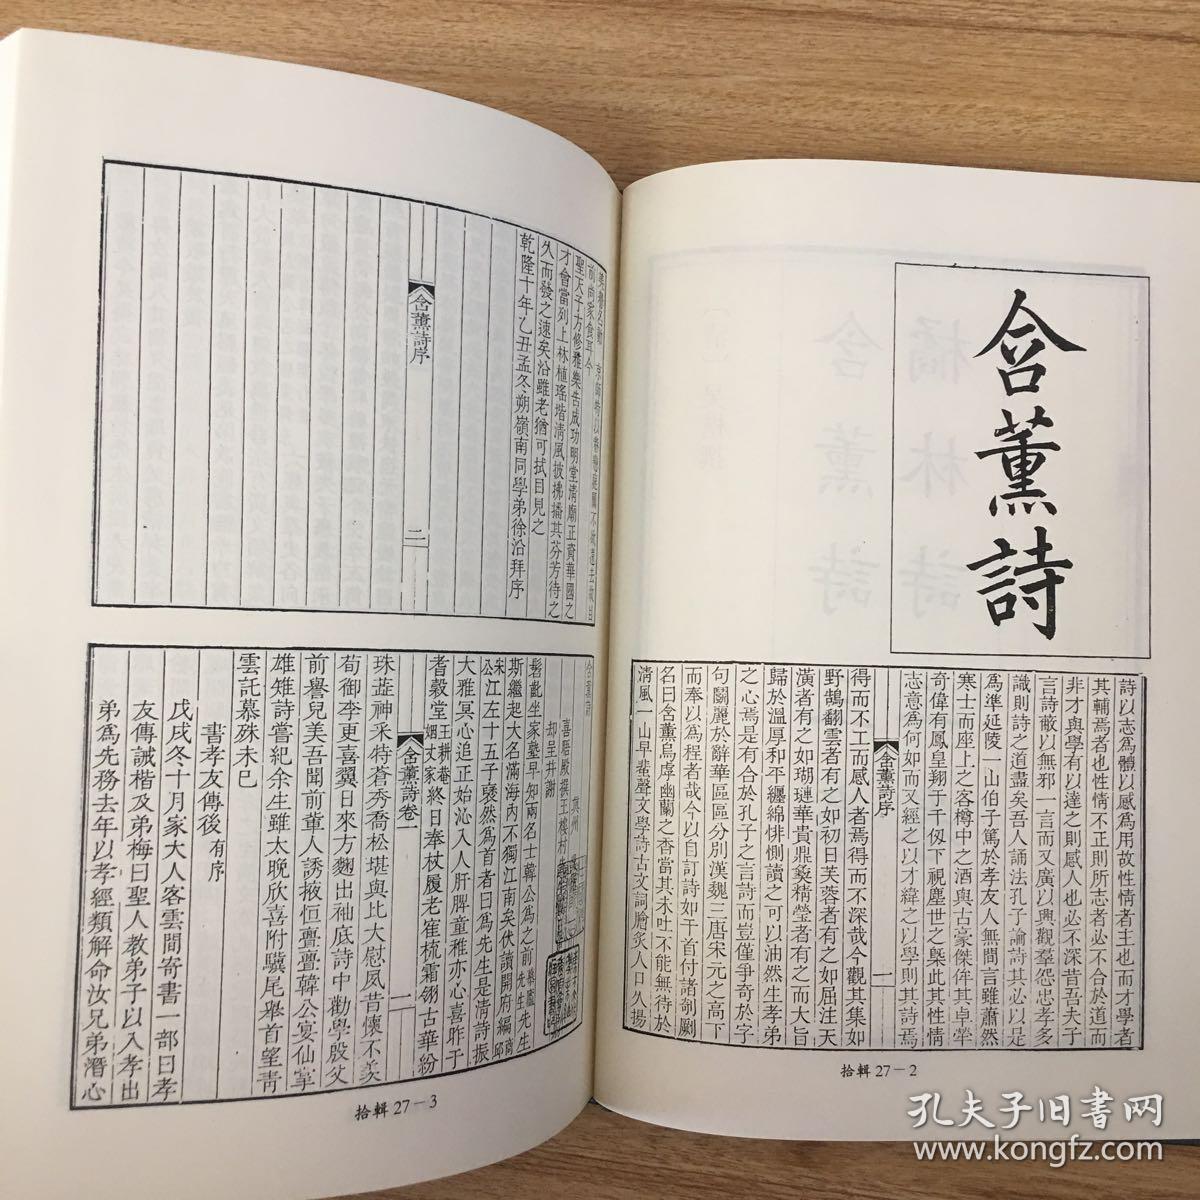 含薰詩
詩以志爲體以感爲用故性情者主也而才學者
其輔焉者也性情不正則所志者必不合於道而
非才與學有以達之則感人也必不深昔吾夫子
言詩蔽以無邪一言而又廣以興觀羣怨忠孝多
識則詩之道盡矣吾人誦法孔子論詩其必以是
爲準延陵一山伯子篤於孝友人無間言雖蕭然
寒士而座上之客樽中之酒與古豪傑侔其卓犖
奇偉有鳳皇翔于千仭下視塵世之槩此其性情
志意爲何如而又經之以才緯之以學則其詩焉
含薰詩序
一
得而不工而感人者焉得而不深哉今觀其集如
野鶴翻雲者有之如初日芙蓉者有之如屈注天
潢者有之如瑚璉華貴鼎彜精瑩者有之而大旨
歸於溫厚和平纏綿悱惻讀之可以油然生孝弟
之心焉是有合於孔子之言詩而豈僅爭奇於字
句鬬麗於辭華區區分別漢魏三唐宋元之高下
而奉以為程者哉今以自訂詩如干首付諸剞劂
名曰含薰烏虖幽蘭之香當其未吐不能無待於
淸風一山早蜚聲文學詩古文詞膾炙人口久揚
拾輯 27－2
前尚家食耳今
聖天子方修雅樂告成功明堂淸廟正賚華國之
才會當列上林植瑤堦淸風披拂播其芬芳待之
久而發之速矣沿雖老猶可拭目見之
乾隆十年乙丑孟冬朔嶺南同學弟徐沿拜序
含薰詩序
二
含薰詩
喜晤殿撰王樓村
却呈幷謝
髫齓坐家塾早知兩名士韓公爲之前慕廬先生先生
斯繼起大名滿海內不獨江南矣伏讀開府編商邱
宋江左十五子褎然爲首者曰爲先生是淸詩振
大雅冥心追正始沁入人肝脾童稚亦心喜昨于
耆穀堂王耕巷姻丈家終日奉杖履老崔梳霜翎古華紛
含薰詩卷一
一
珠蘂神采特蒼秀喬松堪與比大慰夙昔懷不羨
荀御李更喜翼日來方麴出袖底詩中勸與殷父
前譽兒美吾聞前輩人誘掖恒亹亹韓公宴仙掌
雄雉詩嘗紀余生雖太晚欣喜附驥尾舉首望靑
雲託慕殊未巳
書孝友傳後有序
戊戌冬十月家大人客雲間寄書一部曰孝
友傳誡楷及弟梅曰聖人教弟子以入孝出
弟爲先務去年以孝經類解命汝兄弟潛心
拾輯 27－3
孔夫子旧書网
www.kongfz.com